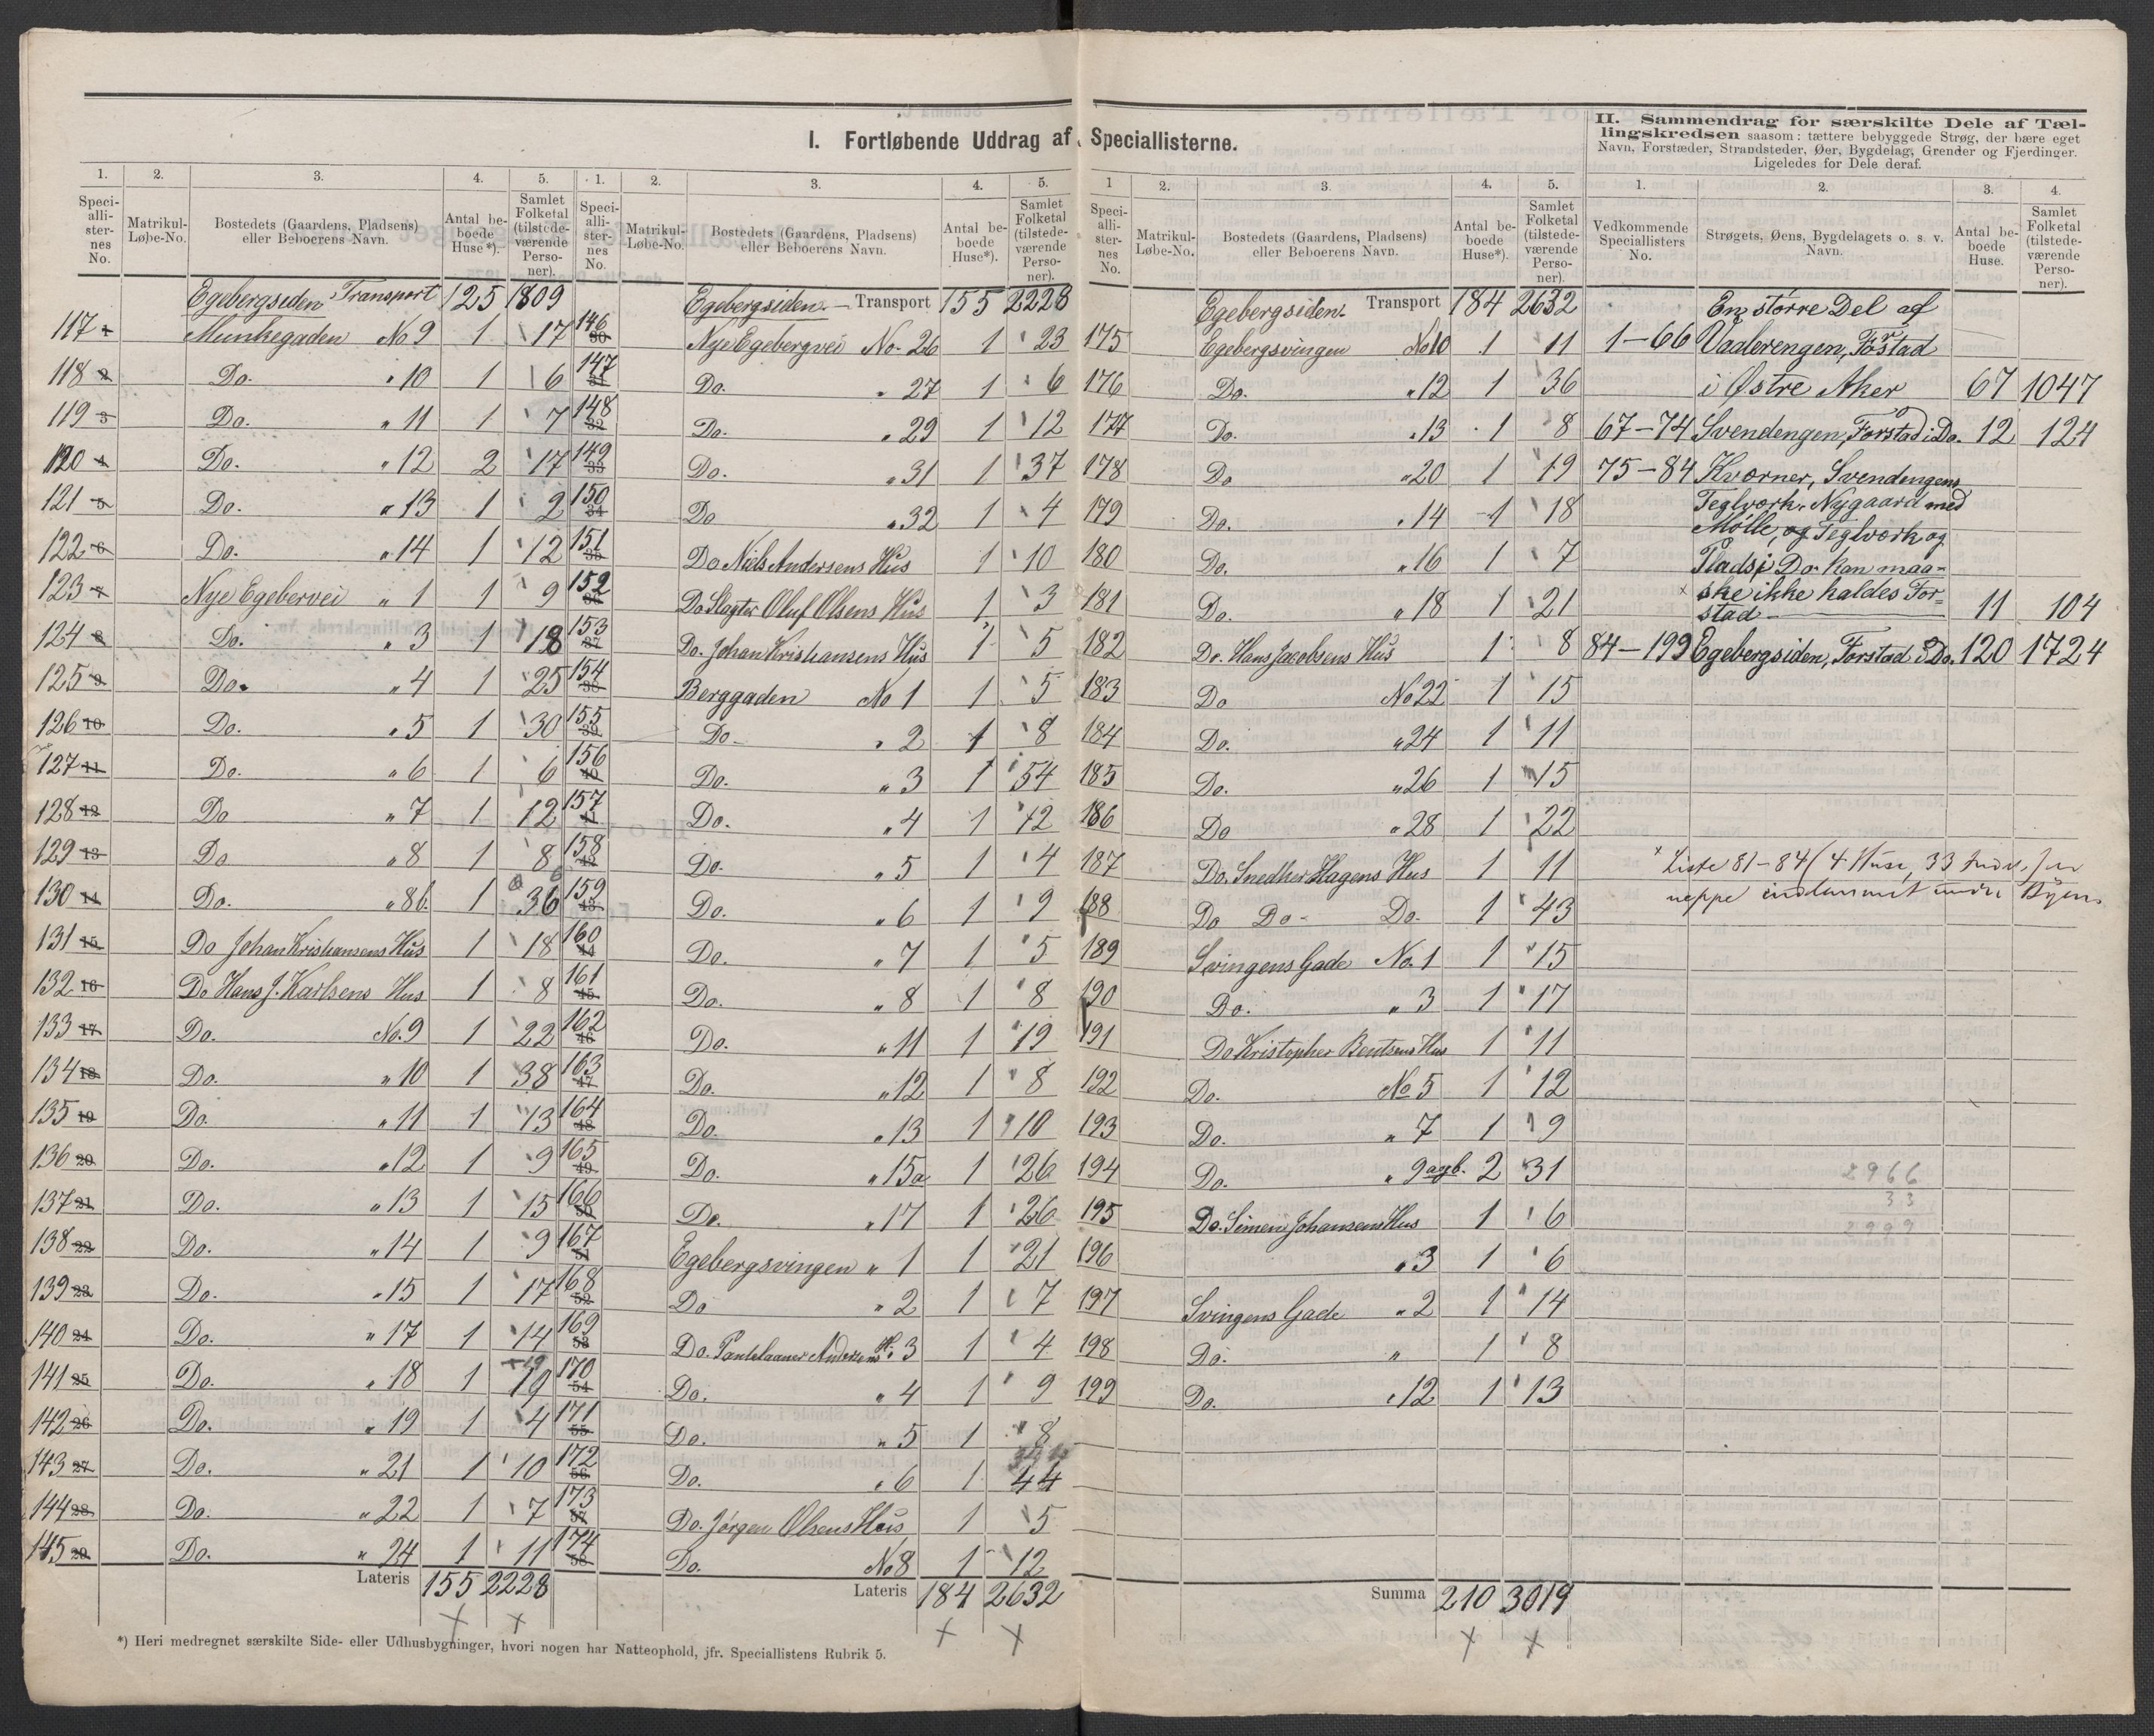 I. Fortløbende Uddrag af Speciallisterne.
1. 2. 3. 4. 5.
Speci-alli-ster-nes No. Matrikul-Løbe-No. Bostedets (Gaardens, Pladsens) eller Beboerens Navn. Antal be-boede Huse*). Samlet Folketal (tilstede-værende Perso-ner).
Egebergsiden Transport 125 1809
117 1 Munkegaden No 9 1 17
118 2 Do. " 10 1 6
119 3 Do. " 11 1 7
120 4 Do. " 12 2 17
121 5 Do. " 13 1 2
122 6 Do. " 14 1 12
123 7 Nye Egebervei " 1 1 9
124 8 Do. " 3 1 18
125 9 Do. " 4 1 25
126 10 Do. " 5 1 30
127 11 Do. " 6 1 6
128 12 Do " 7 1 12
129 13 Do " 8 1 8
130 14 Do. " 8b. 1 36
131 15 Do Johan Kristiansens Hus 1 18
132 16 Do Hans J. Karlsens Hus 1 8
133 17 Do. No. 9 1 22
134 18 Do. " 10 1 38
135 19 Do. " 11 1 13
136 20 Do. " 12 1 9
137 21 Do. " 13 1 15
138 22 Do. " 14 1 9
139 23 Do. " 15 1 17
140 24 Do. " 17 1 14
141 25 Do. " 18 1 19
142 26 Do. " 19 1 4
143 27 Do. " 21 1 10
144 28 Do. " 22 1 7
145 29 Do. " 24 1 11
Lateris 155 2228
*) Heri medregnet særskilte Side- eller Udhusbygninger, hvori nogen har Natteophold, jfr. Speciallistens Rubrik 5.
1. 2. 3. 4. 5.
Speci-alli-ster-nes No. Matrikul-Løbe-No. Bostedets (Gaardens, Pladsens) eller Beboerens Navn. Antal be-boede Huse*). Samlet Folketal (tilstede-værende Perso-ner).
Egebergsiden. - Transport 155 2228
146 30 Nye Egebergvei No. 26 1 23
147 31 Do. " 27 1 6
148 32 Do. " 29 1 12
149 33 Do. " 31 1 37
150 34 Do " 32 1 4
151 35 Do Niels Andersens Hus 1 10
152 36 Do Slagter Oluf Olsens Hus 1 3
153 37 Do. Johan Kristiansens Hus 1 5
154 38 Berggaden No 1 1 5
155 39 Do - " 2 1 8
156 40 Do. " 3 1 54
157 41 Do. " 4 1 12
158 42 Do. " 5 1 4
159 43 Do. " 6 1 9
160 44 Do. " 7 1 5
161 45 Do. " 8 1 8
162 46 Do. " 11 1 19
163 47 Do. " 12 1 8
164 48 Do. " 13 1 10
165 49 Do. " 15a 1 26
166 50 Do. " 17 1 26
167 51 Egebergsvingen " 1 1 21
168 52 Do " 2 1 7
169 53 Do. Andersens H. 3 1 4
170 54 Do. " 4 1 9
171 55 Do. " 5 1 8
172 56 Do. " 6 1 44
173 57 Do. Jørgen Olsens Hus 1 5
174 58 Do. No 8 1 12
Lateris 184 2632
1 2. 3. 4. 5.
Speci-alli-ster-nes No. Matrikul-Løbe-No. Bostedets (Gaardens, Pladsens) eller Beboerens Navn. Antal be-boede Huse*). Samlet Folketal (tilstede-værende Perso-ner).
Egebergsiden. Transport 184 2632
175 Egebergsvingen No 10 1 11
176 Do. " 12 1 36
177 Do. " 13 1 8
178 Do " 20 1 19
179 Do. " 14 1 18
180 Do. " 16 1 7
181 Do. " 18 1 21
182 Do. Hans Jacobsens Hus 1 8
183 Do No 22 1 15
184 Do. " 24 1 11
185 Do. " 26 1 15
186 Do " 28 1 22
187 Do. Snedker Hagens Hus 1 11
188 Do Do - Do. 1 43
189 Svingens Gade No. 1 1 15
190 Do. " 3 1 17
191 Do Kristopher Bentsens Hus 1 11
192 Do. No 5 1 12
193 Do. " 7 1 9
194 Do. " 9 a og b. 2 31
195 Do. Simen Johansens Hus 1 6
196 " 3 1 6
197 Svingens Gade " 2 1 14
198 Do. " 1 8
199 Do. " 12 1 13
Summa 210 3019
II. Sammendrag for særskilte Dele af Tæl-
lingskredsen saasom: tættere bebyggede Strøg, der bære eget
Navn, Forstæder, Strandsteder, Øer, Bygdelag, Grender og Fjerdinger.
Ligeledes for Dele deraf.
1. 2. 3. 4.
Vedkommende Speciallisters No. Strøgets, Øens, Bygdelagets o. s. v. Navn. Antal be-boede Huse. Samlet Folketal (tilstede-værende Perso-ner).
En større Del af
1-66 Vaalerengen, Forstad
i Østre Aker 67 1047
67-74 Svendengen, Forstad i Do. 12 124
75-84 Kværner, Svendengens
Teglværk, Nygaard med
Mølle, og Teglværk og
Plads i Do. kan maa-
× ske ikke kaldes For-
stad - 11 104
84-199 Egebergsiden, Forstad i Do. 120 1724
× Liste 81-84 (4 Huse, 33 Indv.) er
neppe indlemmet under Byen.
2966
33
2999